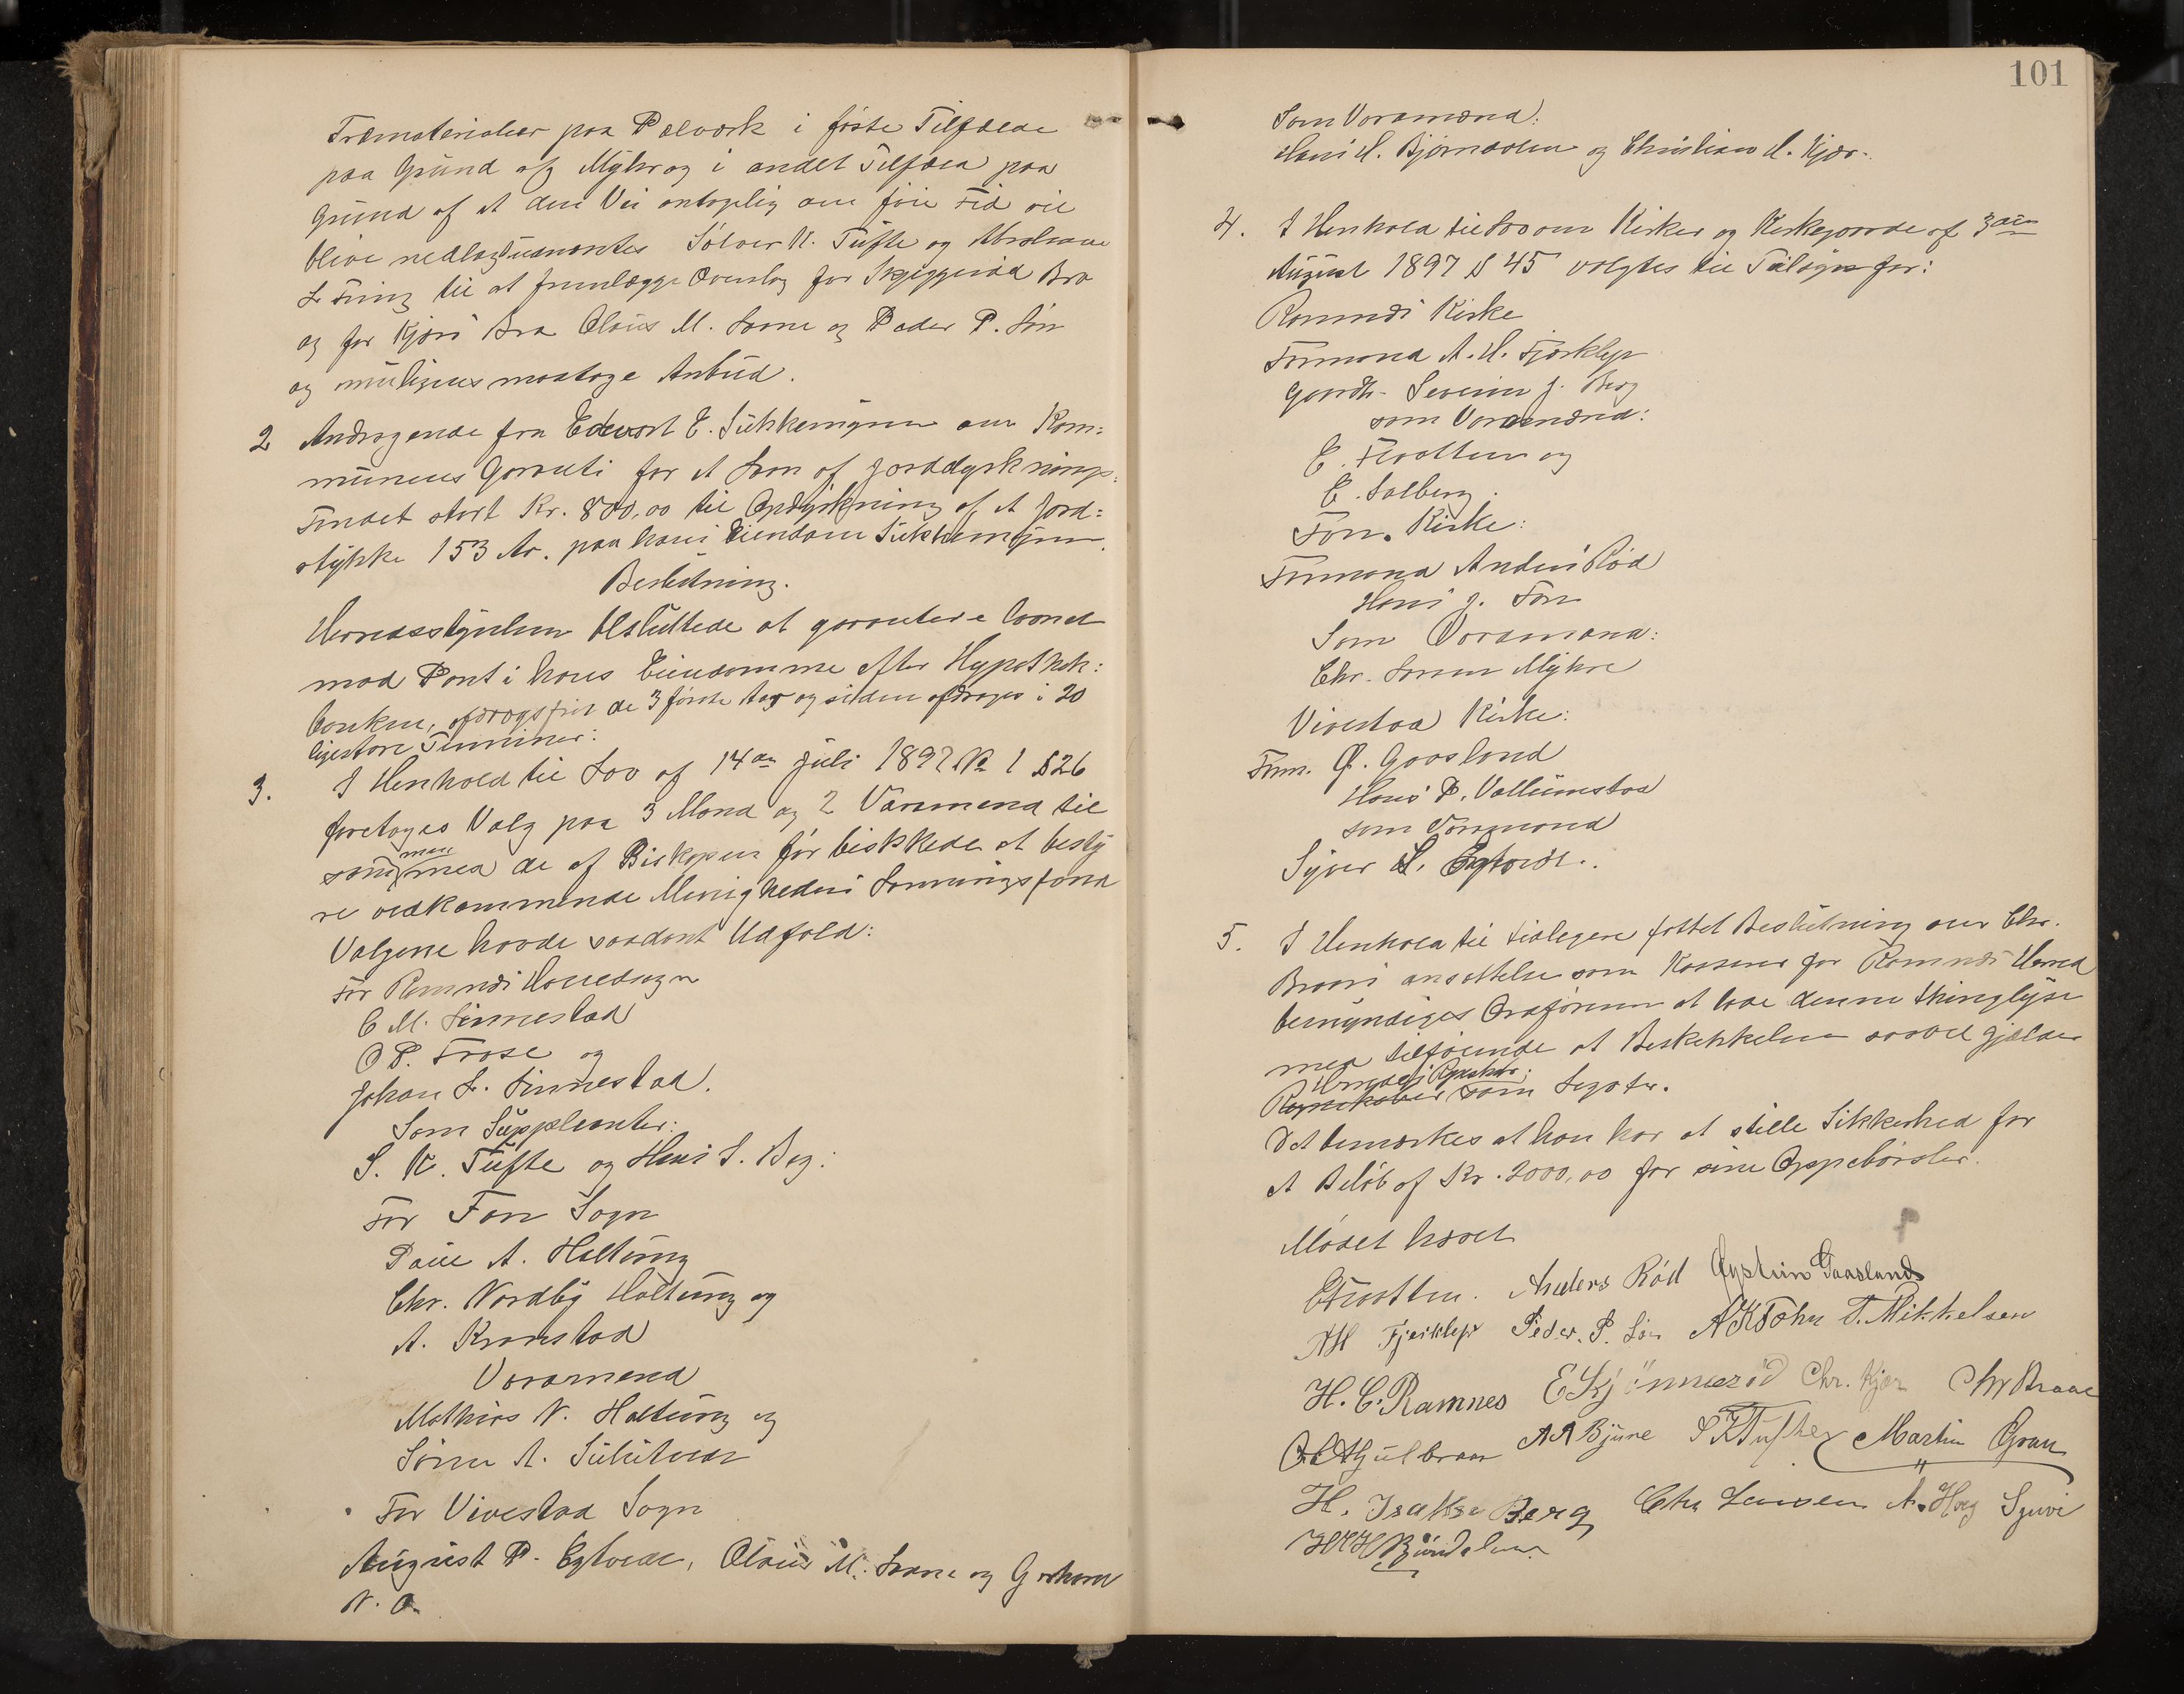 Træmaterialier paa Pælværk i første Tilfælde
paa Grund af Myhr og i andet Tilfæld paa
Grund af at den Vei antagelig om føie Tid vil
blive nedlagt udnævntes Sølver K. Tufte og Abraham
L. Tring til at fremlægge Overslag for Skjeggerød Bro
og for Kjærs Bro Olaus M. Sonne og Peder P. Søn
og muligens modtage Anbud.
2 Andragende fra Edevart E. Sukkemyren om Kom=
munens Garanti for et Laan af Jorddyrknings=
fondet stort Kr. 800,00 til Opdyrkning af et Jord=
stykke 153 Ar. paa hans Eiendom Sukkemyren.
Beslutning.
Herredsstyrelsen besluttede at garantere laanet
mod Pant i hans Eiendomme efter Hypothek=
banken, afdragsfrit de 3 første Aar og siden afdrages i 20
ligestore Terminer.
3. I Henhold til Lov af 14de Juli 1897 No 1 § 26
foretoges Valg paa 3 Mænd og 2 Varamænd til
men
sam med de af Biskopen før beskikkede at besty
re vedkommende Menigheders Lønningsfond
Valgene havde saadant Udfald:
For Ramnæs Hovedsogn
C M. Linnestad
O P. Frose og
Johan L. Linnestad.
Som Suppleanter:
S. K. Tufte og Hans I. Berg.
For Fon Sogn
Paul A. Haltung
Chr. Nordby Haltung og
A. Kronstad
Varamænd
Mathias N. Haltung og
Søren A.
For Vivestad Sogn
August P. Eglvede, Olaus M. Sonne og
N. O.
101
Som Varamænd:
Hans H. Bjørndalen og Christian H. Kjær.
4. I Henhold til Lov om Kirker og Kirkegaarde af 3die
August 1897 § 45 valgtes til Tilsyn for:
Ramnæs Kirke
Formand A. H. Fjærklep
Gaardb. Severin J. Berg
som Varamænd:
E. Flaatten og
E. Solberg.
Fon. Kirke:
Formand Anders Rød
Hans J. Fon
Som Varamand:
Chr. Larsen Myhre
Vivestad Kirke:
Form. Ø. Gaasland
Hans P. Vallumstad
som Varamand
Syver S. Eglvede.
5. I Henhold til tidligere fattet Beslutning om Chr.
Braas ansættelse som Kasserer for Ramnæs Herred
bemyndiges Ordføreren at lade denne thinglyse
med tilføiende at Beskikkelsen saavel gjælder
Herreds Regnskaber
Regnskaber som Legater.
Det bemærkes at han har at stille Sikkerhed for
et Beløb af Kr. 2000,00 for sine Oppebørsler.
Mødet hævet
E Flaatten. Anders Rød Øystein Gaasland
AH Fjærklep Peder. P. Søn A K Fohn T. Mikkelsen
H. C. Ramnes E Kjönnerød Chr. Kjær Chr Braae
O A Hjulbraan A A Bjune S K Tufte Martin Gran
H. Isaksen Berg Chr Larsen A. Hoeg
H H Bjørndalen